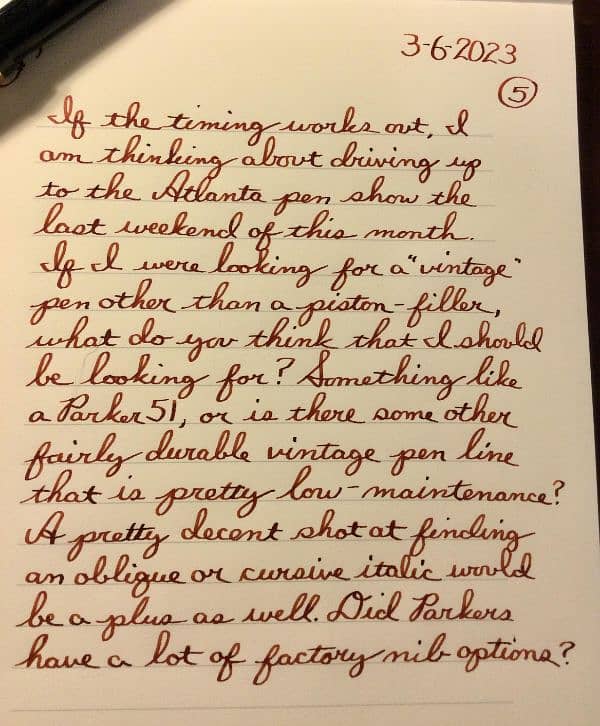 3-6-2023
5
If the timing works out, I
am thinking about driving up
to the Atlanta pen show the
last weekend of this month.
If I were looking for a "vintage"
pen other than a piston-filler,
what do you think that I should
be looking for? Something like
a Parker 51, or is there some other
fairly durable vintage pen line
that is pretty low-maintenance?
A pretty decent shot at finding
an oblique or cursive italic would
be a plus as well. Did Parkers
have a lot of factory nib options?